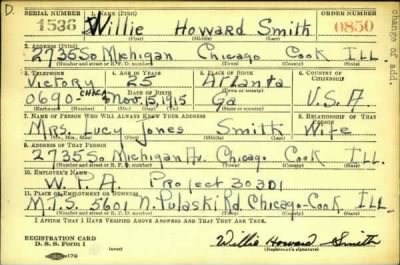 D.
SERIAL NUMBER 1. NAME (Print) ORDER NUMBER
1536 Willie Howard Smith 0850
(First) (Middle) (Last)
2. ADDRESS (Print)
2735 So Michigan Chicago Cook ILL.
(Number and street or R. F. D. number) (Town) (County) (State)
3. TELEPHONE 4. AGE IN YEARS 5. PLACE OF BIRTH 6. COUNTRY OF CITIZENSHIP
Victory 25 Atlanta
DATE OF BIRTH (Town or county)
0690-CHICA Nov. 15, 1915 Ga U.S.A
(Exchange) (Number) (Mo.) (Day) (Yr.) (State or country)
7. NAME OF PERSON WHO WILL ALWAYS KNOW YOUR ADDRESS 8. RELATIONSHIP OF THAT PERSON
Mrs. Lucy Jones Smith Wife
(Mr., Mrs., Miss) (First) (Middle) (Last)
9. ADDRESS OF THAT PERSON
2735 So Michigan Av. Chicago Cook ILL.
(Number and street or R. F. D. number) (Town) (County) (State)
10. EMPLOYER'S NAME
W.P.A Project 30301
11. PLACE OF EMPLOYMENT OR BUSINESS
M.T.S. 5601 N. Pulaski Rd. Chicago-Cook ILL
(Number and street or R. F. D. number) (Town) (County) (State)
I AFFIRM THAT I HAVE VERIFIED ABOVE ANSWERS AND THAT THEY ARE TRUE.
REGISTRATION CARD
D. S. S. Form 1 Willie Howard Smith
(Registrant's signature)
change of add.